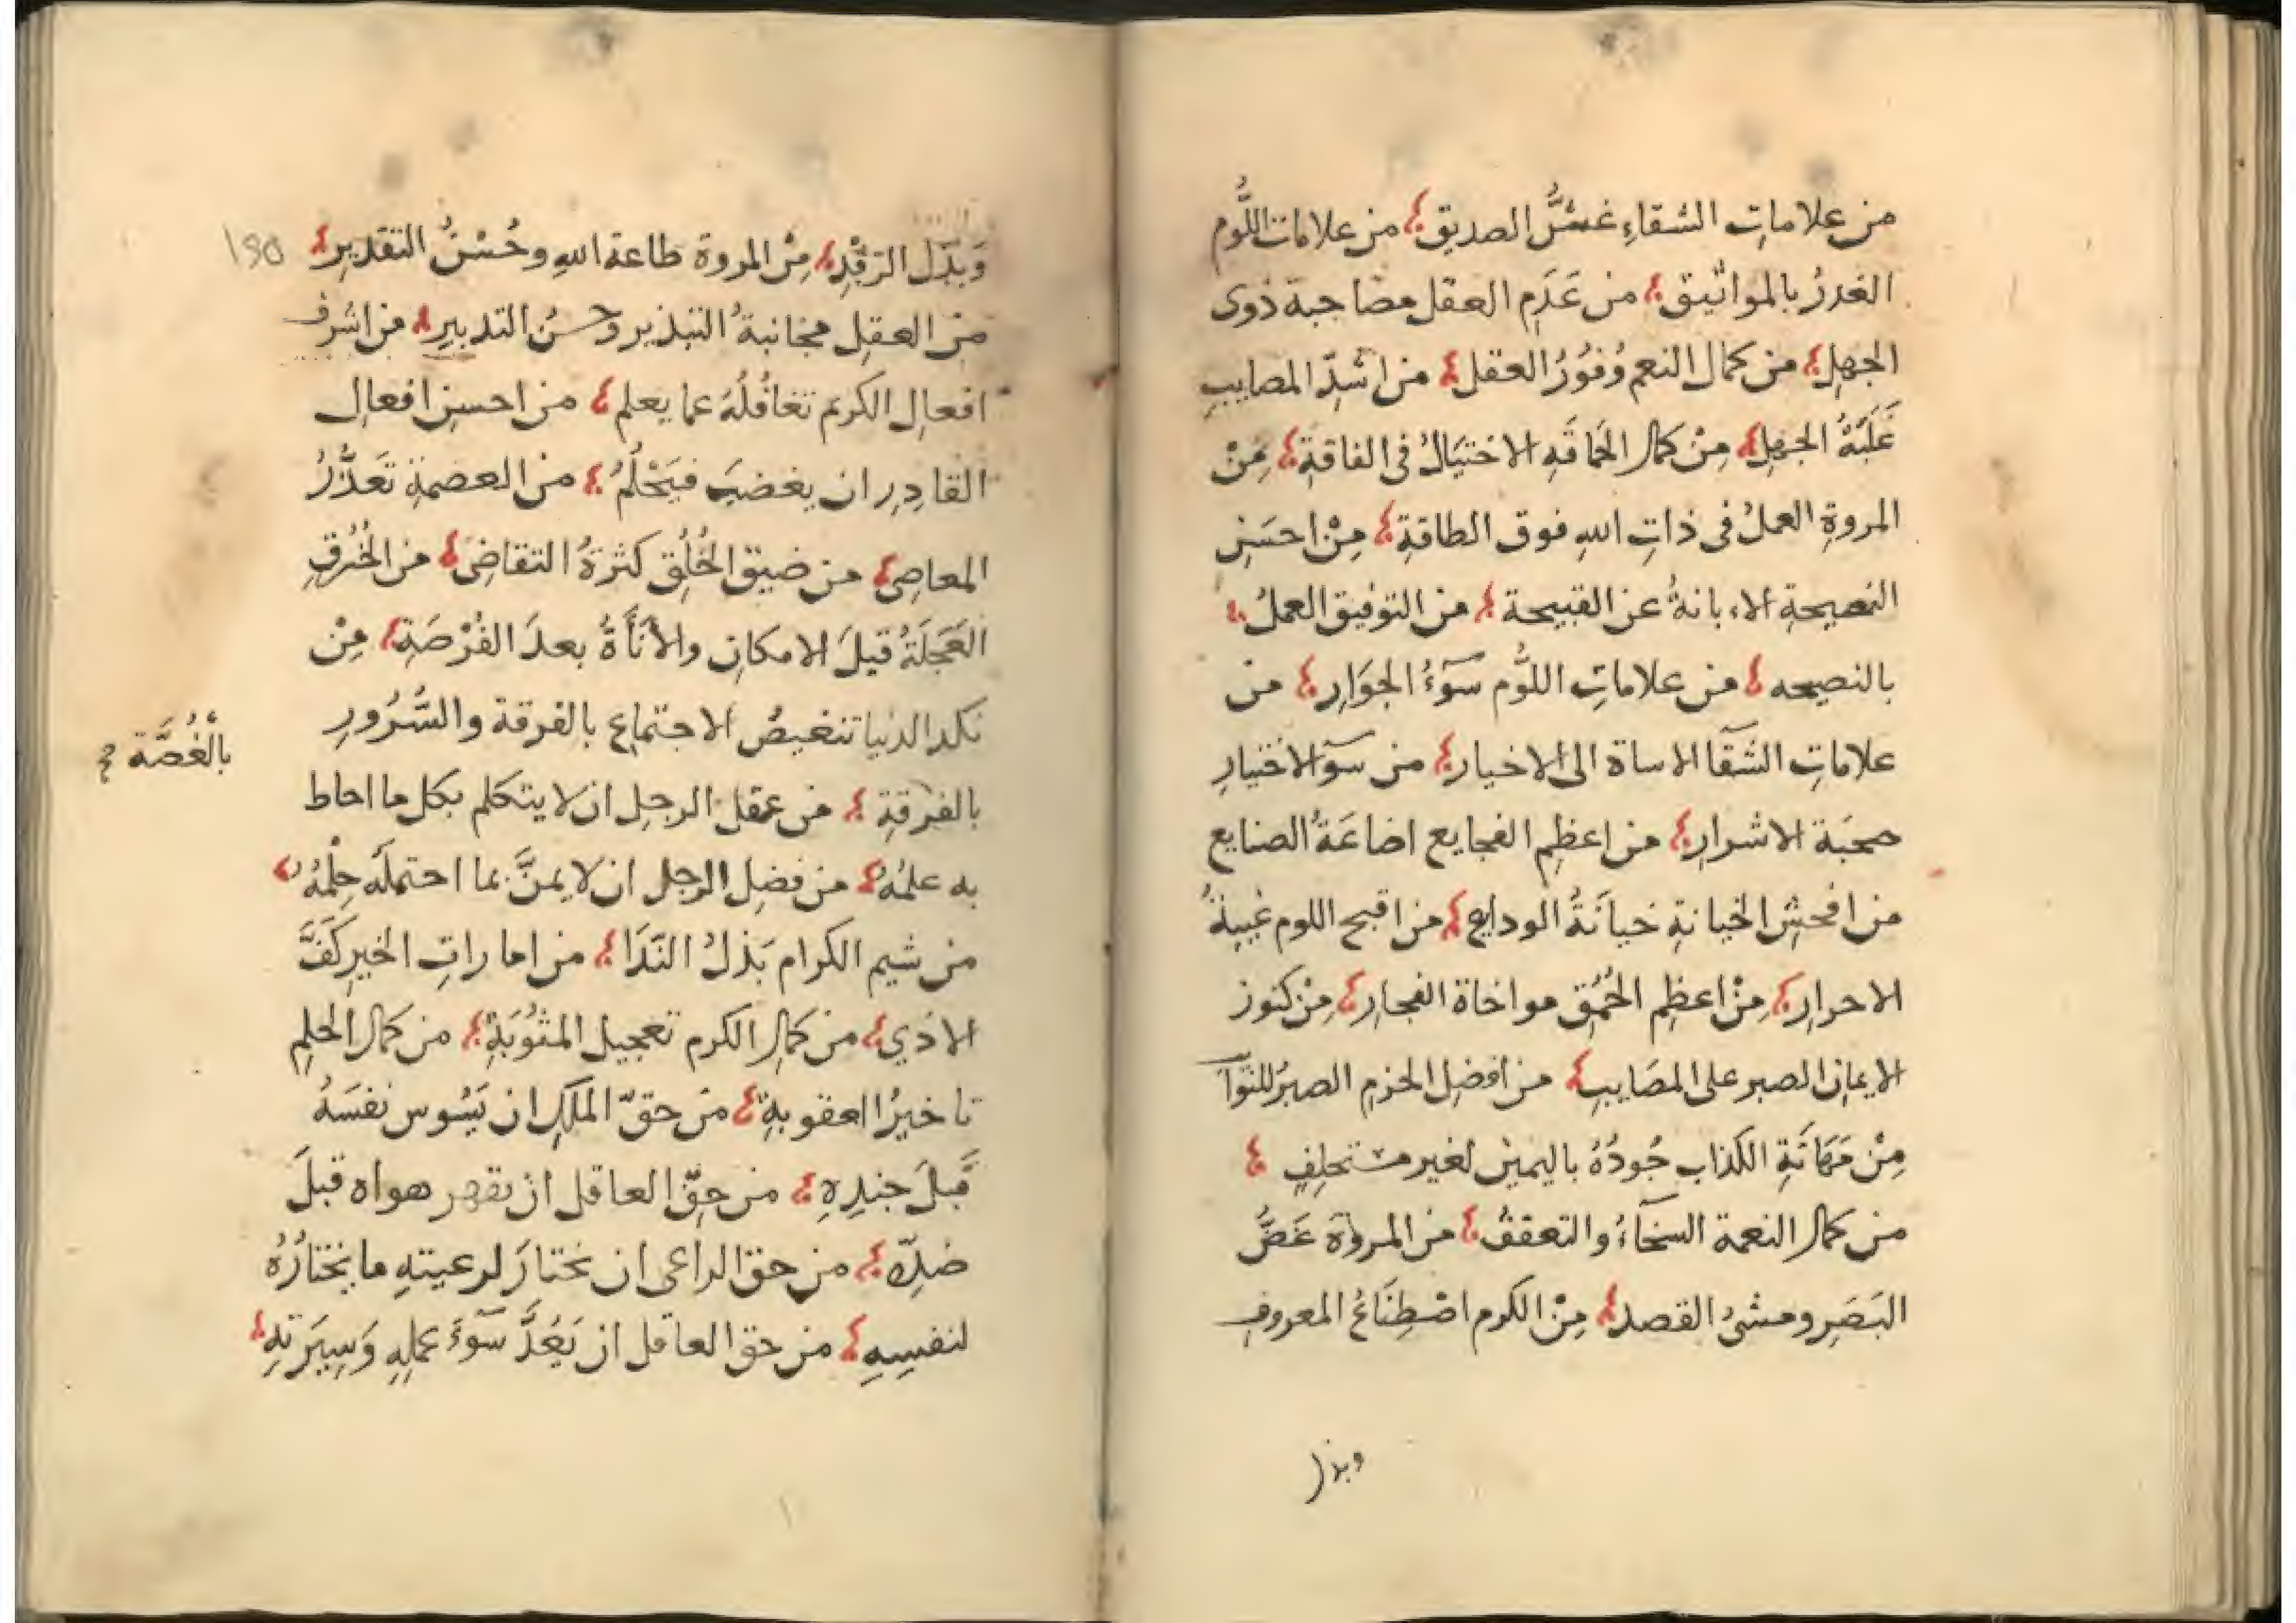 من علاماتِ الشقاءِ غشُّ الصديق؛ من علامات اللُّوم
الغدرُ بالمواثيق؛ من عَدَمِ العقل مصاحبة ذوى
الجهلِ؛ من كمال النعم وُفُورُ العقل؛ من اشدّ المصايبِ
غَلَبَةُ الجهلِ؛ مِنْ كمال الحَماقَهِ الاختيَالُ فى الفاقةِ؛ مِنْ
المروةِ العملُ فى ذاتِ اللهِ فوق الطاقةِ؛ مِنْ احسَنِ
النصيحةِ الاِبانةُ عن القبيحة؛ من التوفيق العملُ؛
بالنصيحه؛ من علاماتِ اللُّوم سوٓءُ الجِوَارِ؛ من
علاماتِ الشَقٓا الاساة الى الاخيار؛ من سوٓ الاختيارِ
صحبَة الاشرارِ؛ من اعظمِ الفجايع اضاعَةُ الصنايع
من افحشِ الخيانةِ خيانَةُ الودايعِ؛ من اقبح اللوم غيبةُ
الاحرارِ؛ مِنْ اعظمِ الحُمُقِ مواخاة الفجارِ؛ مِنْ كنوز
الايمانِ الصبر على المصَايبِ؛ من افضلِ الحزمِ الصبرُ للنوٓا
مِنْ مَهَانَةِ الكذاب جُودُهُ باليمين لغير مستحلِفٍ؛
من كمال النعمة السخآءُ والتعففُ؛ من المروّة غَضُّ
البَصَرِ ومشىُ القصد؛ مِنْ الكرم اصْطِنَاعُ المعروفِ
وبذل
وَبَذل الرِفْدِ؛ مِنْ المروة طاعة اللهِ وحُسْنُ التقديرِ؛
150
من العقلِ مجانبةُ التبذير وحسنُ التدبيرِ؛ من اشرف
افعالِ الكريم تغافُلُهُ عما يعلم؛ من احسنِ افعالِ
القادِرِ ان يغضبَ فيَحْلُمُ؛ من العصمةِ تَعَذُّرُ
المعاصى؛ من ضيق الخُلُق كثرةُ التقاضى؛ من الخُرقِ
العَجَلَةُ قبلَ الامكانِ والأنَأةُ بعدَ الفُرْصَةِ؛ مِنْ
نكد الدنيا تنغيصُ الاجتماعِ بالفرقة والسُّرُورِ
بالْغُصَّة صح
بالفرقةِ؛ من عقل الرجلِ ان لا يتكلم بكل ما احاط
به علمُهُ؛ من فضلِ الرجلِ ان لا يمنَّ بما احتمله حِلْمُهُ؛
من شيم الكرام بَذلُ النَدَا؛ من اماراتِ الخيرِ كَفَّ
الاذي؛ من كمالِ الكرم تعجيل المثوُبَةِ؛ من كمالِ الحلمِ
تاخيرُ العقوبةِ؛ من حقّ المَلكِ ان يَسُوس نفسَهُ
قبلَ جندِهِ؛ من حقّ العاقل ان يقهر هواه قبلَ
ضدِّه؛ من حق الراعى ان يختارَ لرعيتهِ ما يختارُهُ
لنفسِهِ؛ من حق العاقل ان يَعُدَّ سوٓءَ عملِهِ وَسِيَرتهِ؛